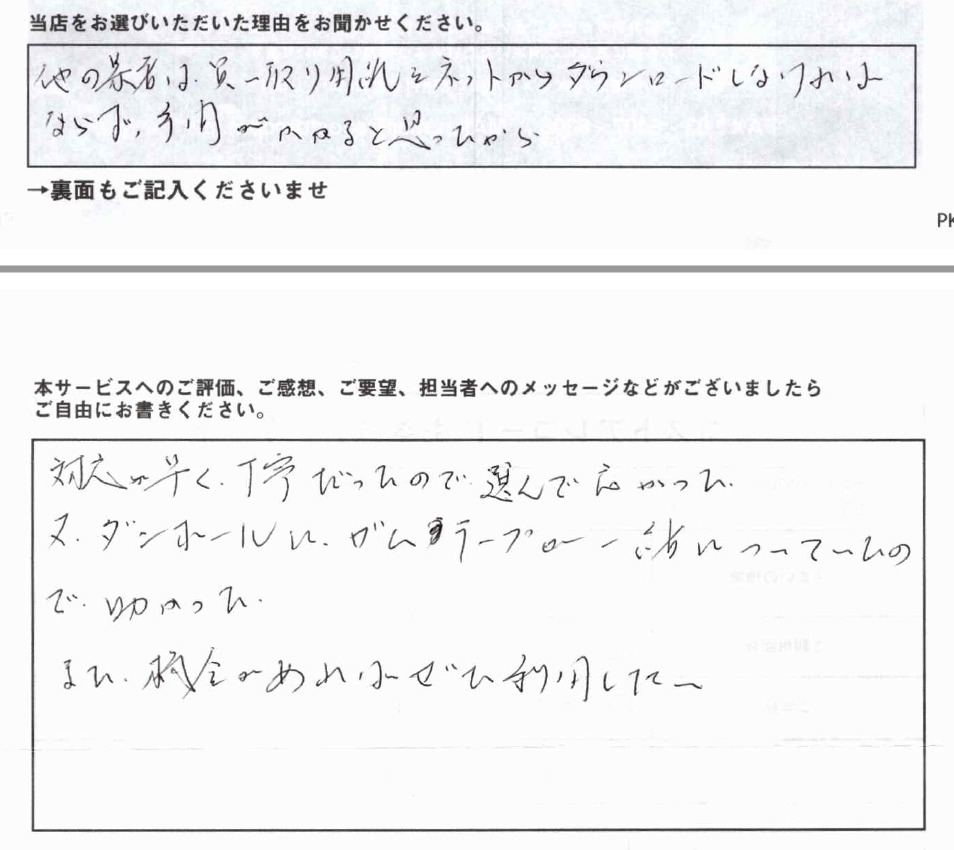 当店をお選びいただいた理由をお聞かせください。
他の業者は、買取り用紙をネットからダウンロードしなければ
ならず、手間がかかると思ったから
→裏面もご記入くださいませ
PK
本サービスへのご評価、ご感想、ご要望、担当者へのメッセージなどがございましたら
ご自由にお書きください。
対応が早く、丁寧だったので選んで良かった。
又、ダンボールに、ガムテープが一緒についていたの
で、助かった。
また、機会があればぜひ利用したい